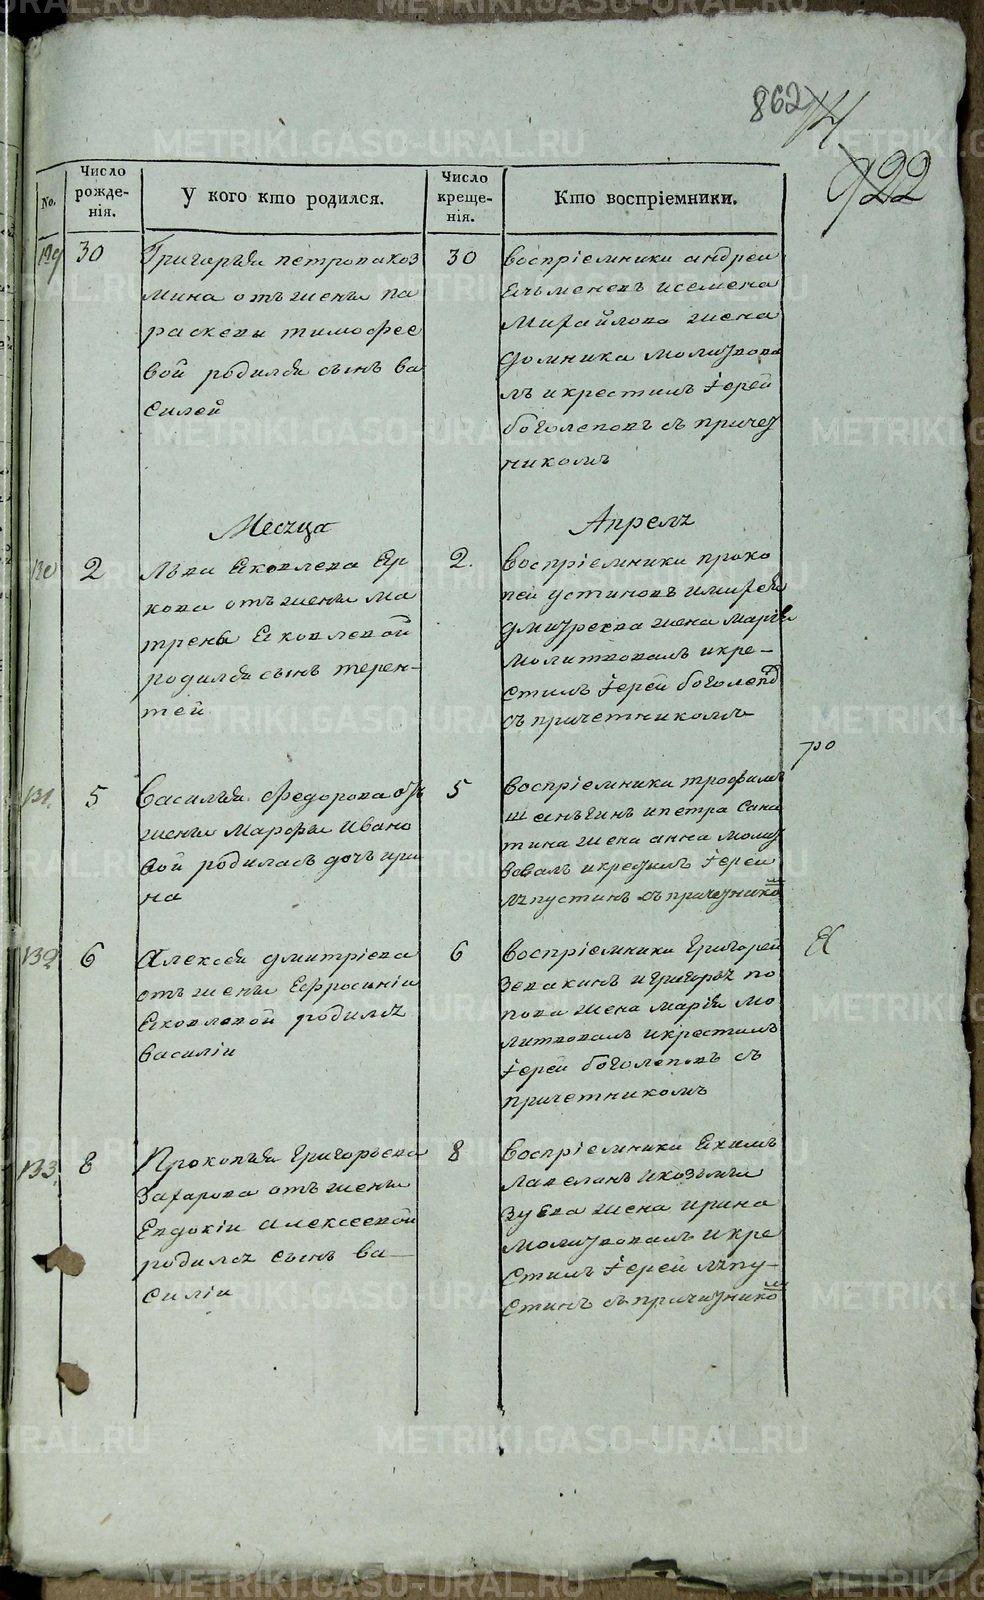 862
922
No.
Число рожде-
нія.
У кого кто родился.
Число креще-
нія.
Кто воспріемники.
129
30
Григорія петрова коз
мина отъ жены па
раскевы тимофее
вой родился сынъ ва
силей
30
воспріемники андреи
и семена
Михайлова жена
домника молитвова
лъ и крестилъ іерей
боголеповъ съ причет
никомъ
Месяца
Апреля
130
2
Льва Яковлева
кова отъ жены ма
трены Яковлевой
родился сынъ терен-
тей
2.
воспріемники проко
пей устиновъ и
дмитреева жена марія
молитвовалъ и кре-
стилъ іерей боголепов
съ причетникомъ
131
5
Василія федорова отъ
жены Марфы Ивано
вой родилась дочь ири
на
5
воспріемники трофимъ
шанъгинъ и петра
тина жена анна молит
вовалъ и крестилъ іереи
ляпустинъ съ причетнико
м
132
6
Алексея дмитріева
отъ жены Ефросиніи
Яковлевой родился
василіи
6
воспріемники григорей
и григорья по
пова жена марія мо
литвовалъ и крестилъ
іерей боголеповъ съ
причетникомъ
133
8
Прокопия григорьева
Захарова отъ жены
Евдокіи алексеевой
родился сынъ ва-
силіи
8
воспріемники Якимъ
и козьмы
зуева жена ирина
молитвовалъ и кре
стилъ іерей ляпу-
стинъ съ причетнико
м
METRIKI.GASO-URAL.RU